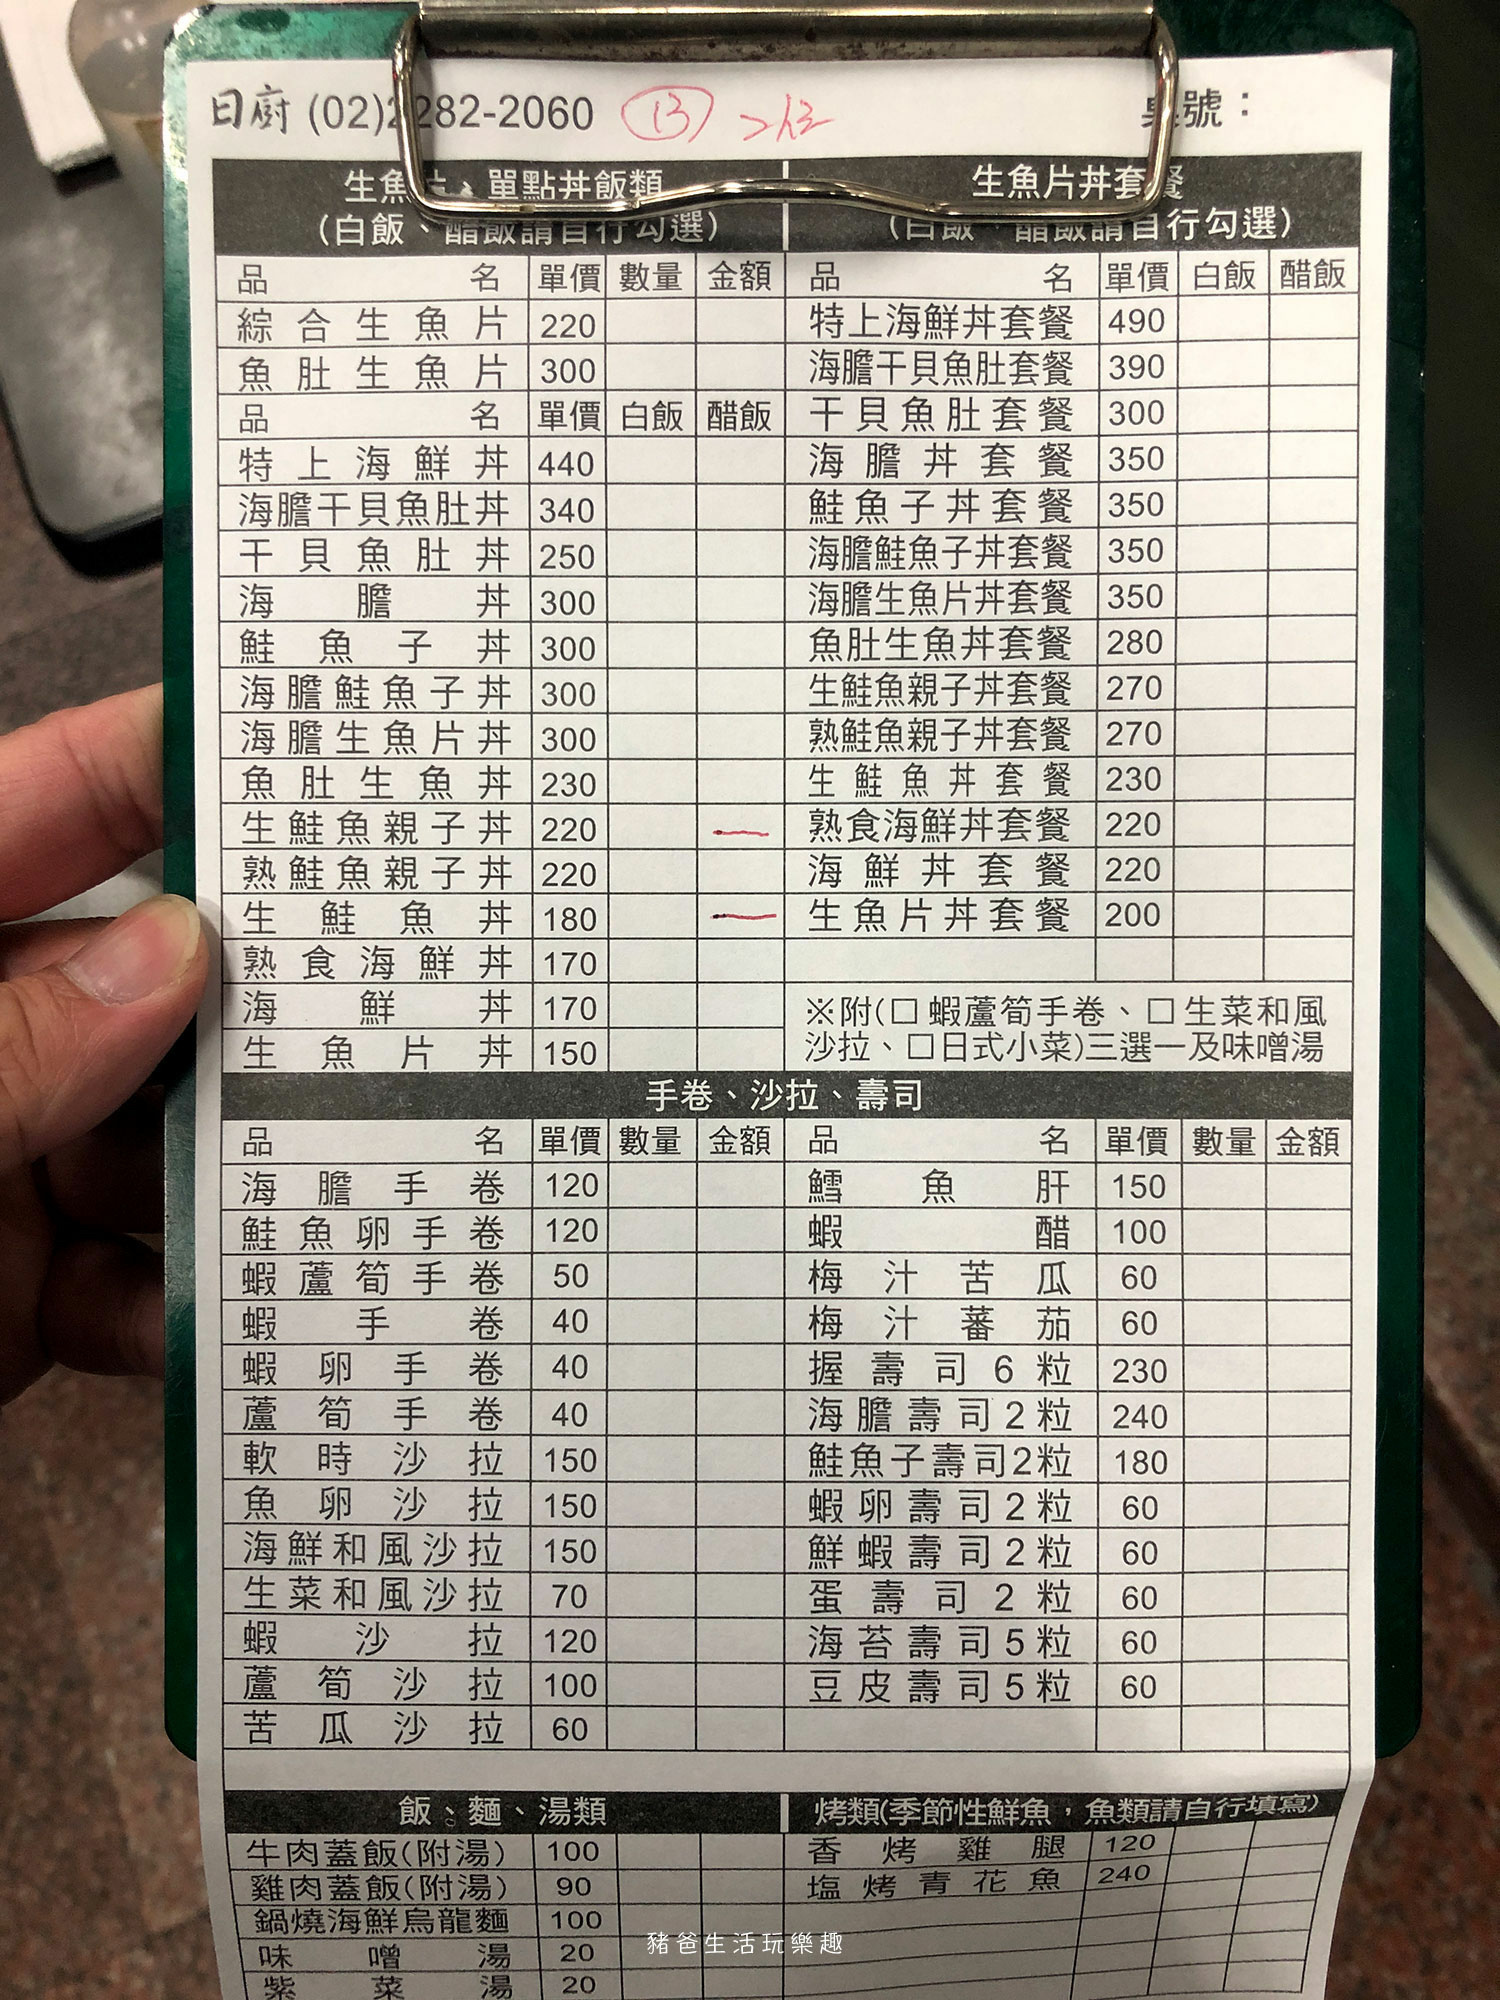 日廚 (02)2282-2060 13
桌號：
生魚片、單點丼飯類
(白飯、醋飯請自行勾選)
品名 單價 數量 金額
綜合生魚片 220
魚肚生魚片 300
品名 單價 白飯 醋飯
特上海鮮丼 440
海膽干貝魚肚丼 340
干貝魚肚丼 250
海膽丼 300
鮭魚子丼 300
海膽鮭魚子丼 300
海膽生魚片丼 300
魚肚生魚丼 230
生鮭魚親子丼 220 一
熟鮭魚親子丼 220
生鮭魚丼 180 一
熟食海鮮丼 170
海鮮丼 170
生魚片丼 150
生魚片丼套餐
(白飯、醋飯請自行勾選)
品名 單價 白飯 醋飯
特上海鮮丼套餐 490
海膽干貝魚肚套餐 390
干貝魚肚套餐 300
海膽丼套餐 350
鮭魚子丼套餐 350
海膽鮭魚子丼套餐 350
海膽生魚片丼套餐 350
魚肚生魚丼套餐 280
生鮭魚親子丼套餐 270
熟鮭魚親子丼套餐 270
生鮭魚丼套餐 230
熟食海鮮丼套餐 220
海鮮丼套餐 220
生魚片丼套餐 200
※附(□蝦蘆筍手卷、□生菜和風
沙拉、□日式小菜)三選一及味噌湯
手卷、沙拉、壽司
品名 單價 數量 金額
海膽手卷 120
鮭魚卵手卷 120
蝦蘆筍手卷 50
蝦手卷 40
蝦卵手卷 40
蘆筍手卷 40
軟時沙拉 150
魚卵沙拉 150
海鮮和風沙拉 150
生菜和風沙拉 70
蝦沙拉 120
蘆筍沙拉 100
苦瓜沙拉 60
品名 單價 數量 金額
鱈魚肝 150
蝦醋 100
梅汁苦瓜 60
梅汁蕃茄 60
握壽司6粒 230
海膽壽司2粒 240
鮭魚子壽司2粒 180
蝦卵壽司2粒 60
鮮蝦壽司2粒 60
蛋壽司2粒 60
海苔壽司5粒 60
豆皮壽司5粒 60
飯、麵、湯類
牛肉蓋飯(附湯) 100
雞肉蓋飯(附湯) 90
鍋燒海鮮烏龍麵 100
味噌湯 20
紫菜湯 20
烤類(季節性鮮魚，魚類請自行填寫)
香烤雞腿 120
塩烤青花魚 240
豬爸生活玩樂趣